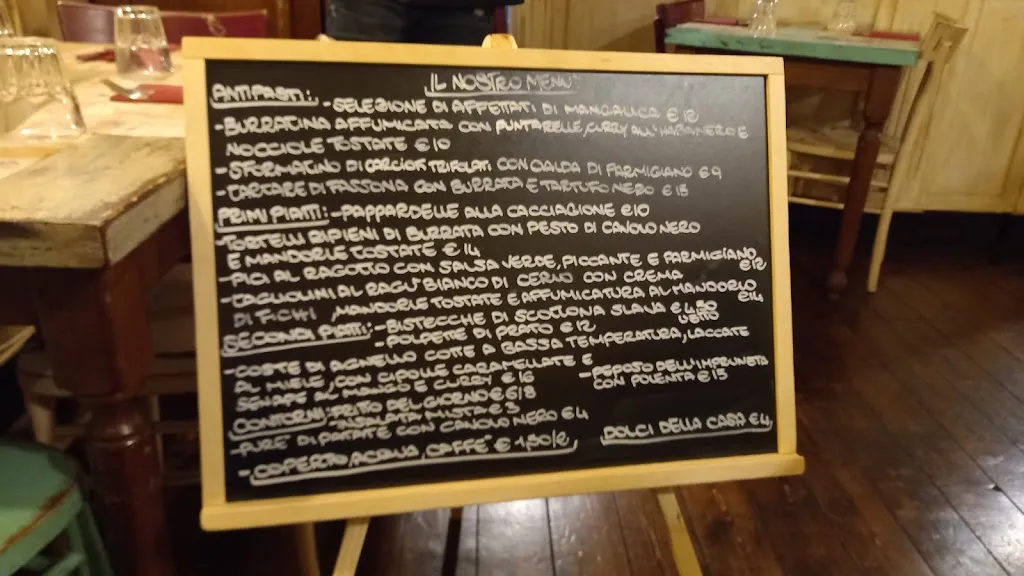 IL NOSTRO MENU'
ANTIPASTI: - SELEZIONE DI AFFETTATI DI MANGALICA € 12
- BURRATINA AFFUMICATA CON PUNTARELLE, CURRY ALL'HABANERO E
NOCCIOLE TOSTATE € 10
- SFORMATINO DI CARCIOFI TRIFOLATI CON CIALDA DI PARMIGIANO € 9
- TARTARE DI FASSONA CON BURRATA E TARTUFO NERO € 15
PRIMI PIATTI: - PAPPARDELLE ALLA CACCIAGIONE € 10
- TORTELLI RIPIENI DI BURRATA CON PESTO DI CAVOLO NERO
E MANDORLE TOSTATE € 14
- PICI AL RAGOTTO CON SALSA VERDE, PICCANTE E PARMIGIANO € 12
- TAGLIOLINI AL RAGU' BIANCO DI CERVO CON CREMA
DI FICHI, MANDORLE TOSTATE E AFFUMICATURA AL MANDORLO € 14
SECONDI PIATTI: - BISTECCHE DI SCOTTONA SLAVA € 4,50 L'ETTO
- POLPETTE DI PRATO € 12
- COSTE DI AGNELLO COTTE A BASSA TEMPERATURA, LACCATE
AL MIELE, CON CIPOLLE CARAMELLATE E
SENAPE AL MIELE E CURRY € 16
- PEPOSO DELL'IMPRUNETA
CON POLENTA € 13
CONTORNI: - FRITTO DEL GIORNO € 6/8
- INSALATA MISTA € 3
- PURE' DI PATATE CON CAVOLO NERO € 4
- COPERTO, ACQUA, CAFFE' € 1,50/2
DOLCI DELLA CASA € 4